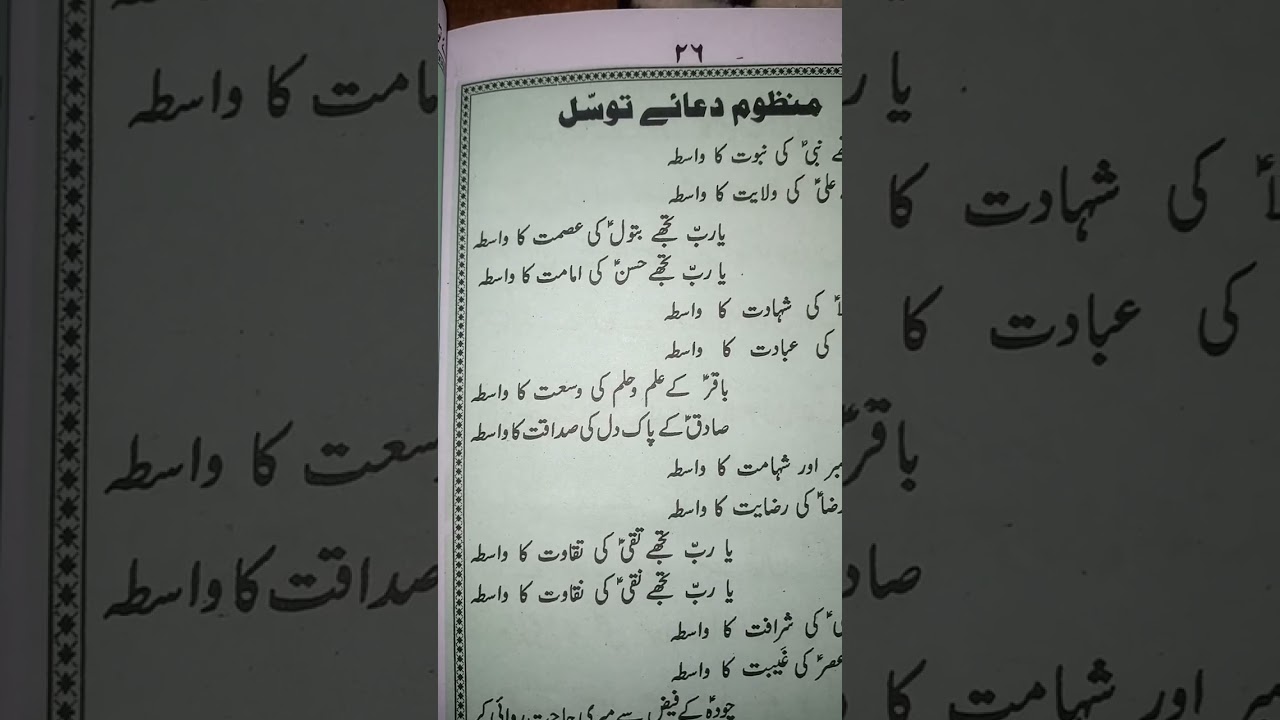 ۲٦
منظوم دعائے توسّل
نبیؐ کی نبوت کا واسطہ
علیؑ کی ولایت کا واسطہ
یا ربّ تجھے بتولؑ کی عصمت کا واسطہ
یا ربّ تجھے حسنؑ کی امامت کا واسطہ
کی شہادت کا واسطہ
کی عبادت کا واسطہ
باقرؑ کے علم و حلم کی وسعت کا واسطہ
صادقؑ کے پاک دل کی صداقت کا واسطہ
اور شہامت کا واسطہ
رضاؑ کی رضایت کا واسطہ
یا ربّ تجھے تقیؑ کی تقاوت کا واسطہ
یا ربّ تجھے نقیؑ کی نقاوت کا واسطہ
کی شرافت کا واسطہ
عصرؑ کی غَیبت کا واسطہ
چودہؑ کے فیض سے میری حاجت روائی کر